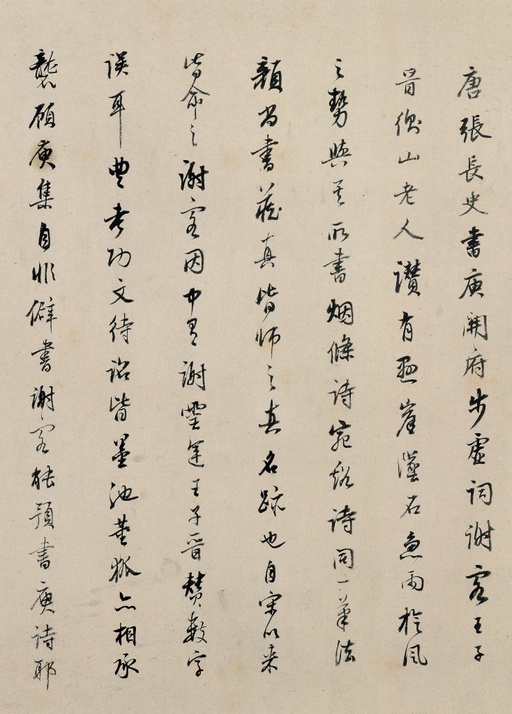 唐張長史書庾開府步虛詞謝客王子
晉衡山老人讚有懸崖墜石急雨旋風
之勢與其所書烟條詩宛谿詩同一筆法
顏尚書藏真皆師之真名跡也自宋以來
皆命之謝客因中有謝靈運王子晉贊數字
誤耳豐考功文待詔皆墨池董狐亦相承
襲顧庾集自非僻書謝客能預書庾詩耶